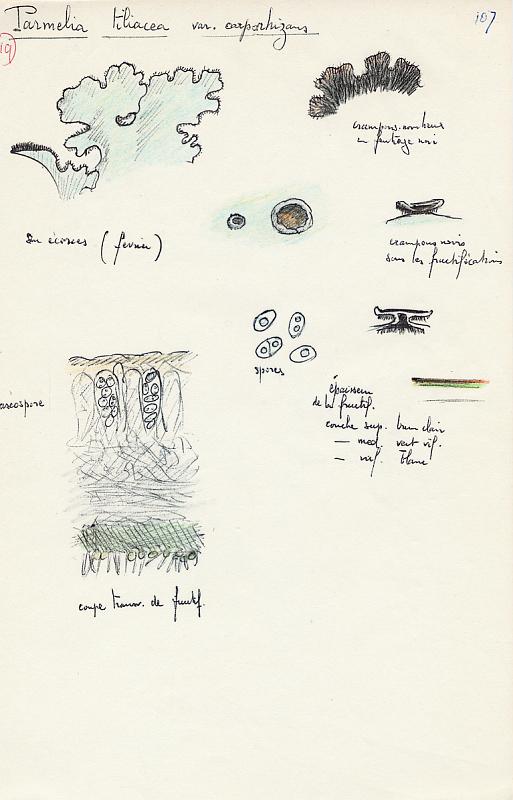 Parmelia tiliacea var. carporhizans
107
19
crampons nombreux
en feutrage noir
Sur écorces (février)
crampons noirs
sous les fructifications
spores
épaisseur
de la fructif.
couche sup. brun clair
— med. vert vif.
— inf. blanc
coupe transv. de fructif.